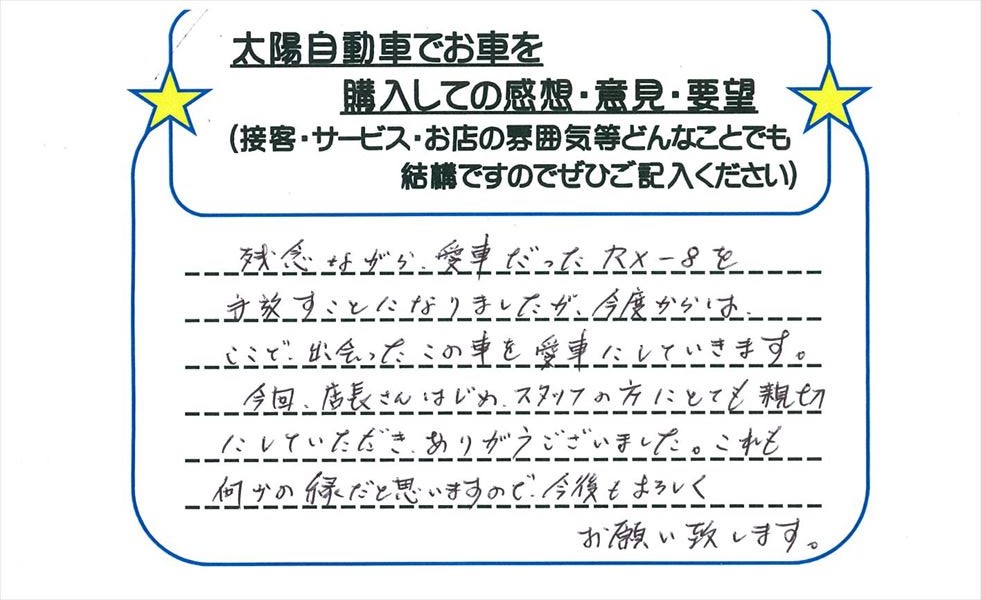 太陽自動車でお車を
購入しての感想・意見・要望
(接客・サービス・お店の雰囲気等どんなことでも
結構ですのでぜひご記入ください)
残念ながら、愛車だったRX-8を
手放すことになりましたが、今度からは、
ここで、出会ったこの車を愛車にしていきます。
今回、店長さんはじめ、スタッフの方にとても親切
にしていただき、ありがうございました。これも
何かの縁だと思いますので、今後もよろしく
お願い致します。